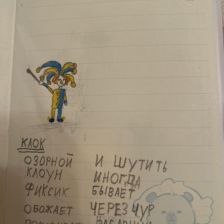 КЛОК
ОЗОРНОЙ И ШУТИТЬ
КЛОУН ИНОГДА
ФИКСИК БЫВАЕТ
ОБОЖАЕТ ЧЕРЕЗЧУР